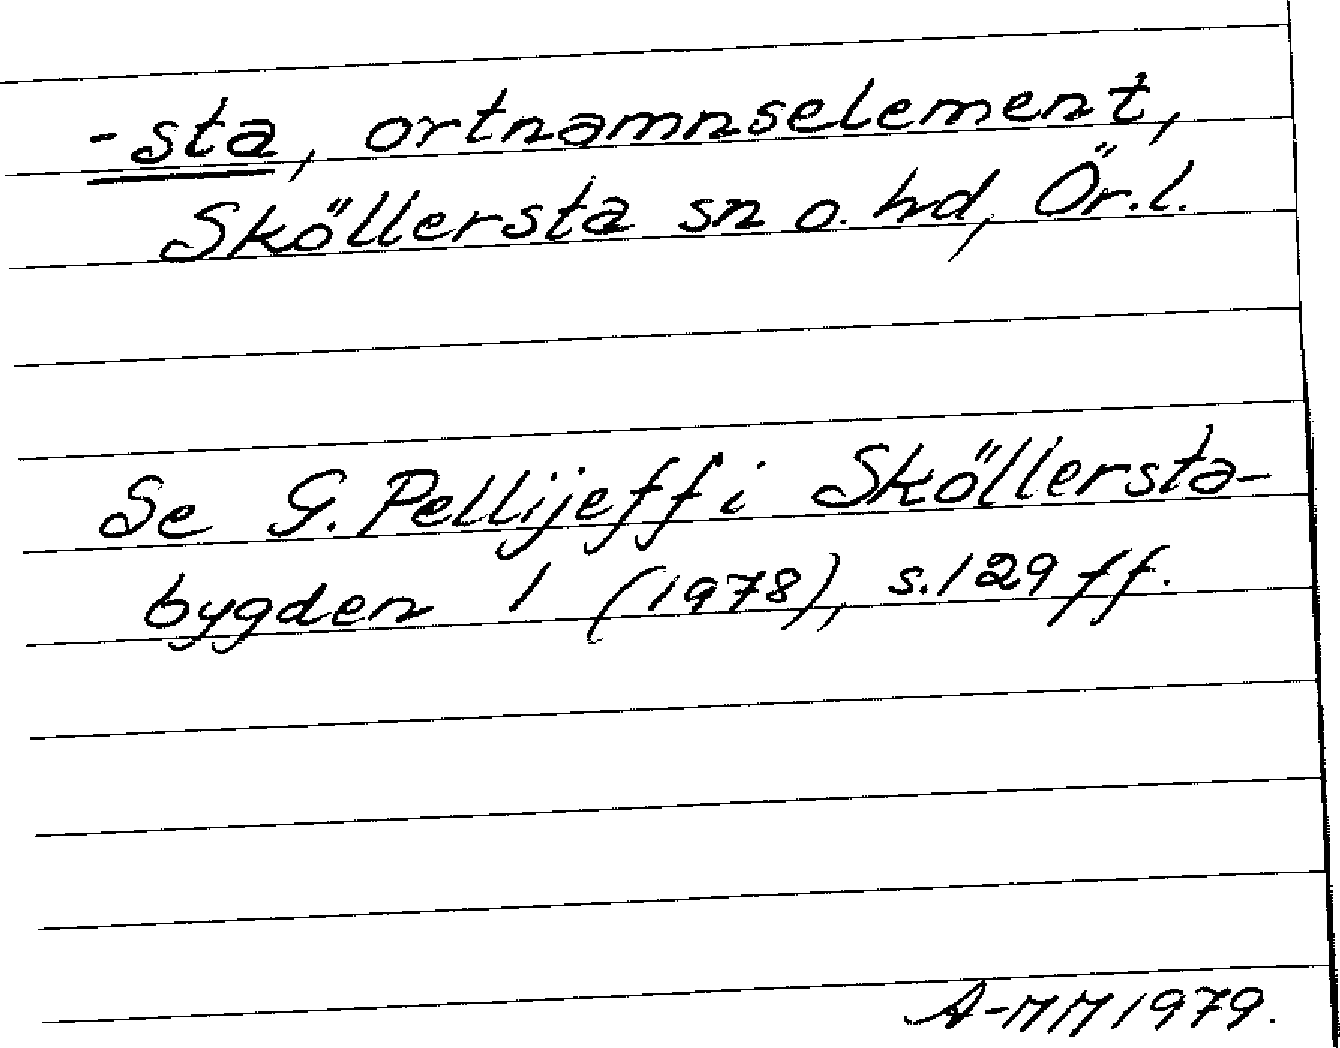 -sta, ortnamnselement,
Sköllersta sn o. hd, Ör.l.
Se G. Pellijeff i Sköllersta-
bygden 1 (1978), s.129 ff.
A-MM 1979.